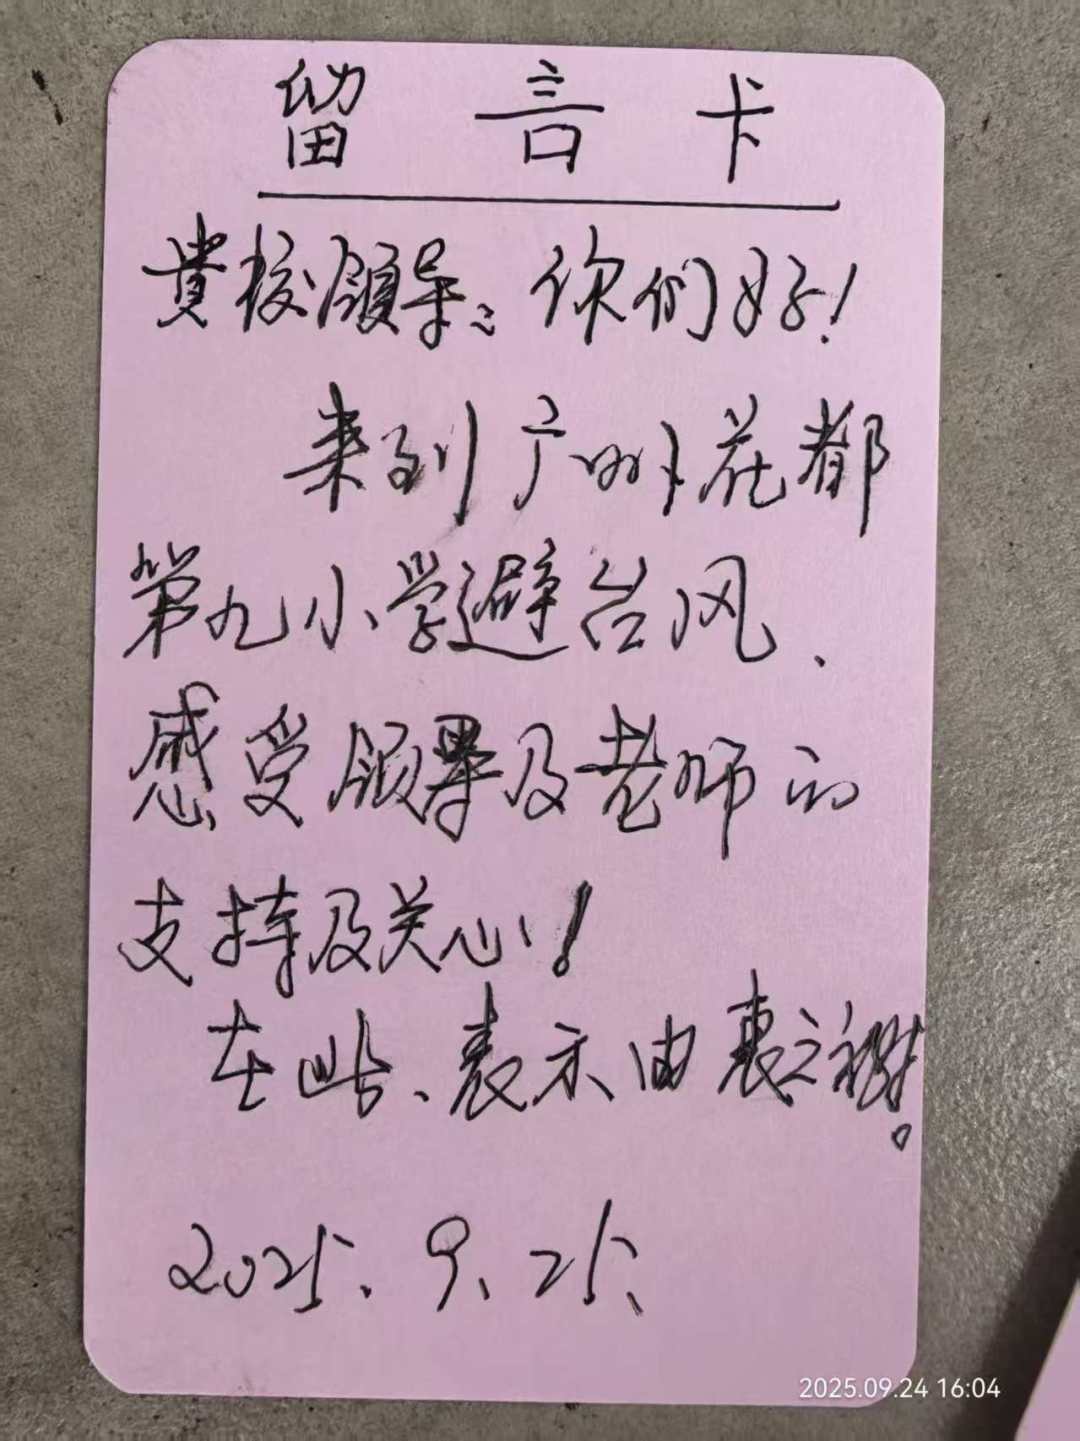 留言卡
貴校领导：你们好！
来到广州花都
第九小学避台风、
感受领导及老师的
支持及关心！
在此、表示由衷之谢。
2025.9.25、
2025.09.24 16:04